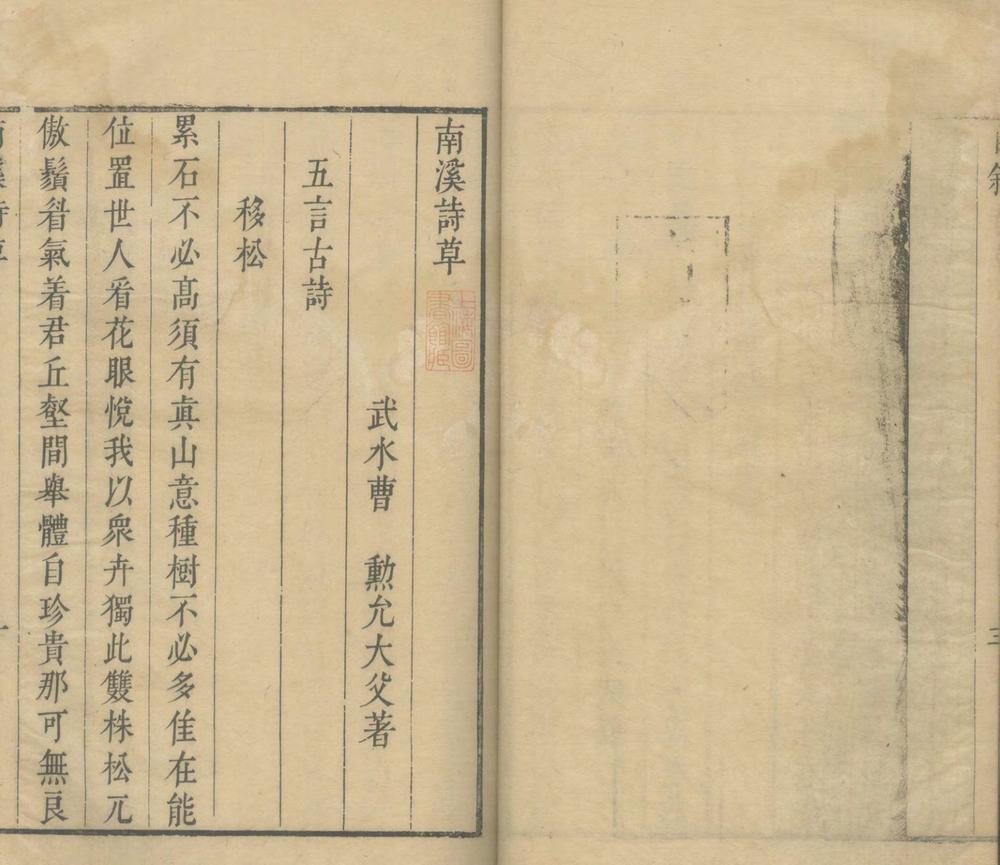 南溪詩草
武水曹　勲允大父著
五言古詩
移松
累石不必髙須有眞山意種樹不必多佳在能
位置世人看花眼悅我以衆卉獨此雙株松兀
傲鬚眉氣着君丘壑間舉體自珍貴那可無良
南溪詩草